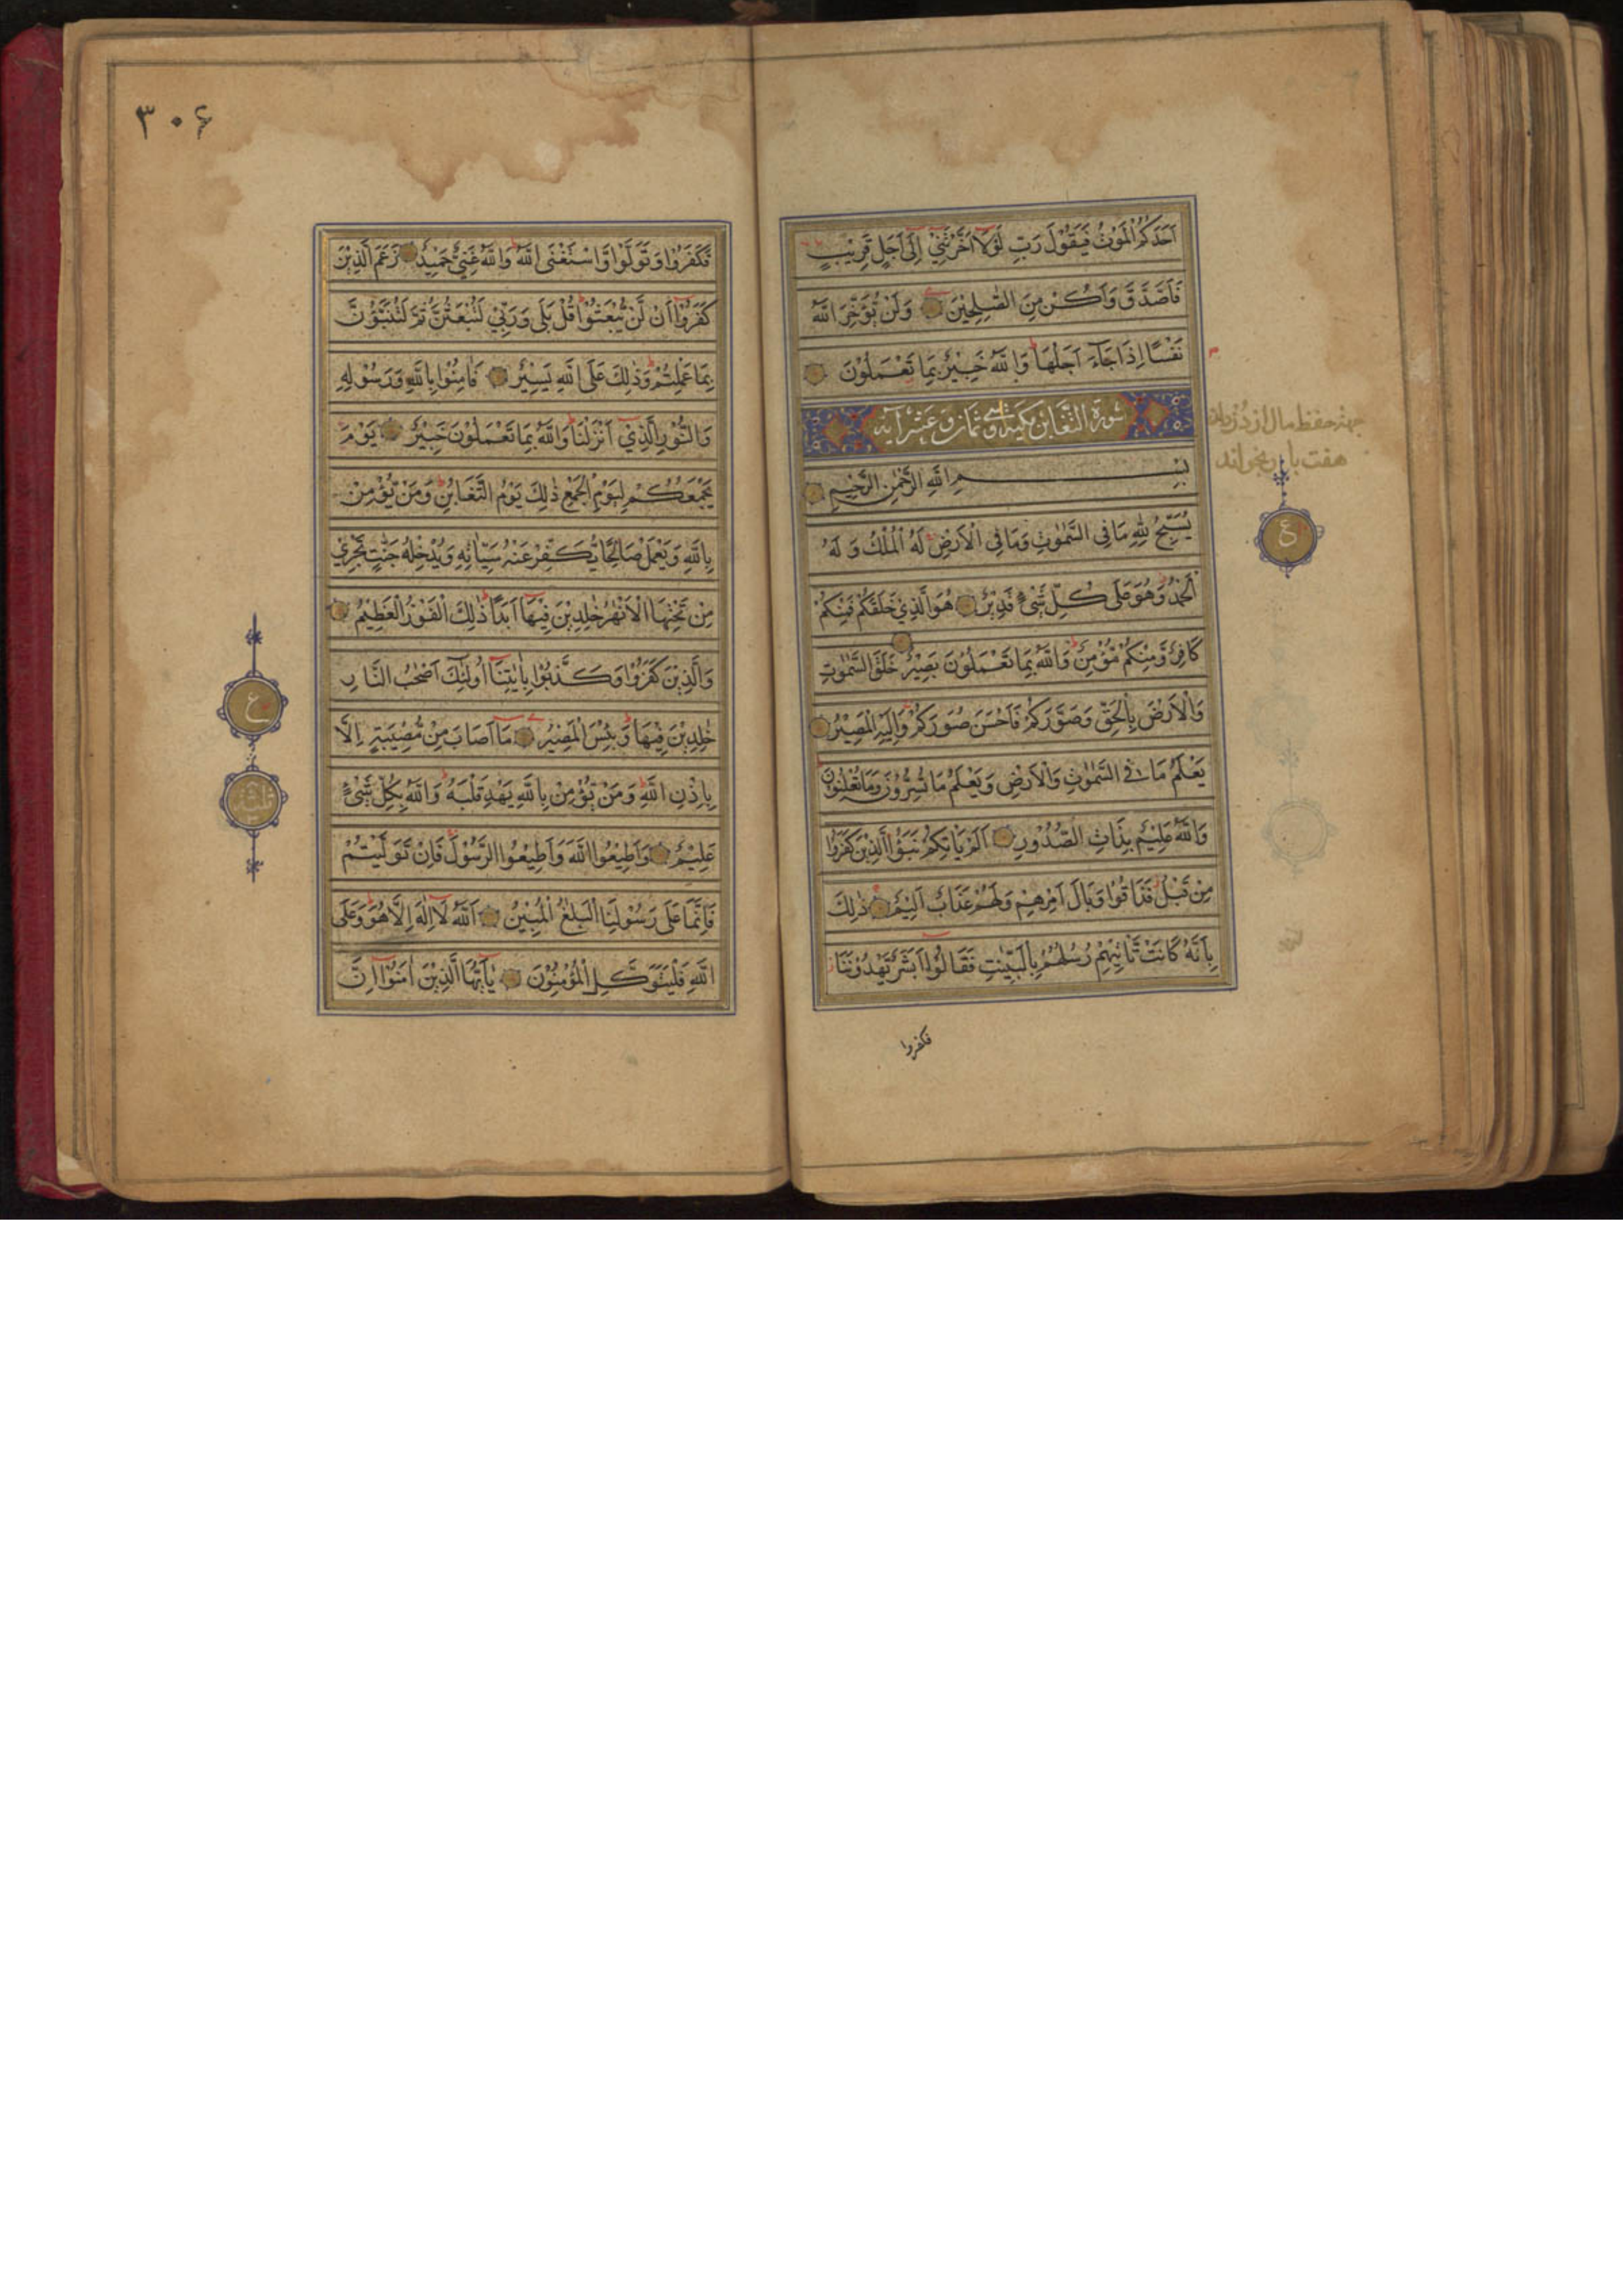 اَحَدَكُمُ الْمَوْتُ فَيَقُوْلَ رَبِّ لَوْلَآ اَخَّرْتَنِيْٓ اِلٰٓى اَجَلٍ قَرِيْبٍ
فَاَصَّدَّقَ وَاَكُنْ مِنَ الصّٰلِحِيْنَ وَلَنْ يُؤَخِّرَ اللّٰهُ
نَفْسًا اِذَا جَآءَ اَجَلُهَا وَاللّٰهُ خَبِيْرٌ بِمَا تَعْمَلُوْنَ
سورة التغابن مكية وهي ثمان وعشر آية
جهة حفظ مال از دزدان
هفت بار بخواند
بِسْمِ اللّٰهِ الرَّحْمٰنِ الرَّحِيْمِ
يُسَبِّحُ لِلّٰهِ مَا فِى السَّمٰوٰتِ وَمَا فِى الْاَرْضِ لَهُ الْمُلْكُ وَلَهُ
ع
الْحَمْدُ وَهُوَ عَلٰى كُلِّ شَيْءٍ قَدِيْرٌ هُوَ الَّذِيْ خَلَقَكُمْ فَمِنْكُمْ
كَافِرٌ وَّمِنْكُمْ مُّؤْمِنٌ وَاللّٰهُ بِمَا تَعْمَلُوْنَ بَصِيْرٌ خَلَقَ السَّمٰوٰتِ
وَالْاَرْضَ بِالْحَقِّ وَصَوَّرَكُمْ فَاَحْسَنَ صُوَرَكُمْ وَاِلَيْهِ الْمَصِيْرُ
يَعْلَمُ مَا فِي السَّمٰوٰتِ وَالْاَرْضِ وَيَعْلَمُ مَا تُسِرُّوْنَ وَمَا تُعْلِنُوْنَ
وَاللّٰهُ عَلِيْمٌ بِذَاتِ الصُّدُوْرِ اَلَمْ يَاْتِكُمْ نَبَؤُا الَّذِيْنَ كَفَرُوْا
مِنْ قَبْلُ فَذَاقُوْا وَبَالَ اَمْرِهِمْ وَلَهُمْ عَذَابٌ اَلِيْمٌ ذٰلِكَ
بِاَنَّهُ كَانَتْ تَّاْتِيْهِمْ رُسُلُهُمْ بِالْبَيِّنٰتِ فَقَالُوْٓا اَبَشَرٌ يَّهْدُوْنَنَا
فكفروا
٣٠۶
فَكَفَرُوْا وَتَوَلَّوْا وَّاسْتَغْنَى اللّٰهُ وَاللّٰهُ غَنِيٌّ حَمِيْدٌ زَعَمَ الَّذِيْنَ
كَفَرُوْٓا اَنْ لَّنْ يُّبْعَثُوْا قُلْ بَلٰى وَرَبِّيْ لَتُبْعَثُنَّ ثُمَّ لَتُنَبَّؤُنَّ
بِمَا عَمِلْتُمْ وَذٰلِكَ عَلَى اللّٰهِ يَسِيْرٌ فَاٰمِنُوْا بِاللّٰهِ وَرَسُوْلِهِ
وَالنُّوْرِ الَّذِيْٓ اَنْزَلْنَا وَاللّٰهُ بِمَا تَعْمَلُوْنَ خَبِيْرٌ يَوْمَ
يَجْمَعُكُمْ لِيَوْمِ الْجَمْعِ ذٰلِكَ يَوْمُ التَّغَابُنِ وَمَنْ يُّؤْمِنْ
بِاللّٰهِ وَيَعْمَلْ صَالِحًا يُّكَفِّرْ عَنْهُ سَيِّاٰتِهِ وَيُدْخِلْهُ جَنّٰتٍ تَجْرِيْ
مِنْ تَحْتِهَا الْاَنْهٰرُ خٰلِدِيْنَ فِيْهَآ اَبَدًا ذٰلِكَ الْفَوْزُ الْعَظِيْمُ
وَالَّذِيْنَ كَفَرُوْا وَكَذَّبُوْا بِاٰيٰتِنَآ اُولٰئِكَ اَصْحٰبُ النَّارِ
ع
خٰلِدِيْنَ فِيْهَا وَبِئْسَ الْمَصِيْرُ مَآ اَصَابَ مِنْ مُّصِيْبَةٍ اِلَّا
بِاِذْنِ اللّٰهِ وَمَنْ يُّؤْمِنْ بِاللّٰهِ يَهْدِ قَلْبَهُ وَاللّٰهُ بِكُلِّ شَيْءٍ
عَلِيْمٌ وَاَطِيْعُوا اللّٰهَ وَاَطِيْعُوا الرَّسُوْلَ فَاِنْ تَوَلَّيْتُمْ
فَاِنَّمَا عَلٰى رَسُوْلِنَا الْبَلٰغُ الْمُبِيْنُ اَللّٰهُ لَآ اِلٰهَ اِلَّا هُوَ وَعَلَى
اللّٰهِ فَلْيَتَوَكَّلِ الْمُؤْمِنُوْنَ يٰٓاَيُّهَا الَّذِيْنَ اٰمَنُوْٓا اِنَّ